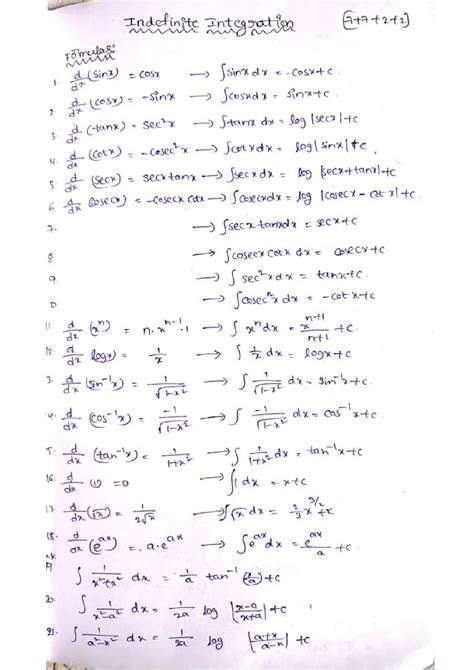 Indefinite Integration [7+7+2+2]
Formulas:
1. d/dx (sinx) = cosx → ∫sinx dx = -cosx+c.
2 d/dx (cosx) = -sinx → ∫cosxdx = sinx+c.
3. d/dx (tanx) = sec²x → ∫tanx dx = log|secx|+c
4. d/dx (cotx) = -cosec²x → ∫cotx dx = log|sinx|+c
5 d/dx (secx) = secxtanx → ∫secxdx = log |secx+tanx|+c
6. d/dx (cosecx) = -cosecx cotx → ∫cosecxdx = log |cosecx-cotx|+c
7. → ∫secx tanxdx = secx+c
8. → ∫cosecx cotx dx = cosecx+c.
9. → ∫sec²xdx = tanx+c
→ ∫cosec²x dx = -cotx+c
11. d/dx (xⁿ) = n·xⁿ⁻¹·1 → ∫xⁿdx = xⁿ⁺¹/n+1 +c.
12. d/dx (logx) = 1/x → ∫1/x dx = logx+c
3. d/dx (sin⁻¹x) = 1/√1-x² → ∫1/√1-x² dx = sin⁻¹x+c.
4. d/dx (cos⁻¹x) = -1/√1-x² → ∫-1/√1-x² dx = cos⁻¹x+c.
5. d/dx (tan⁻¹x) = 1/1+x² → ∫1/1+x² dx = tan⁻¹x+c
16. d/dx (1) = 0 → ∫1 dx = x+c
17. d/dx (√x) = 1/2√x → ∫√x dx = 2/3 x^3/2+c
18. d/dx (e^ax) = a·e^ax → ∫e^ax dx = e^ax/a +c
∫1/x²+a² dx = 1/a tan⁻¹(x/a)+c
20. ∫1/x²-a² dx = 1/2a log |x-a/x+a| +c
21. ∫1/a²-x² dx = 1/2a log |a+x/a-x| +c